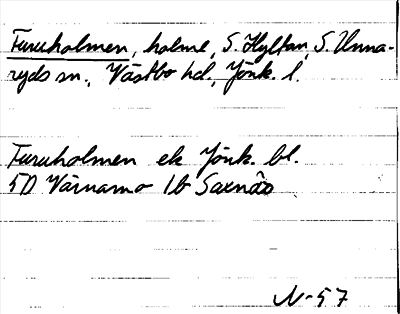 Furuholmen, holme, S. Hyltan, S. Unna-
ryds sn., Västbo hd., Jönk. l.
Furuholmen ek Jönk. bl.
5D Värnamo 1b Saxnäs
N-57